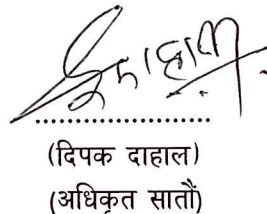 ....................
(दिपक दाहाल)
(अधिकृत सातौं)